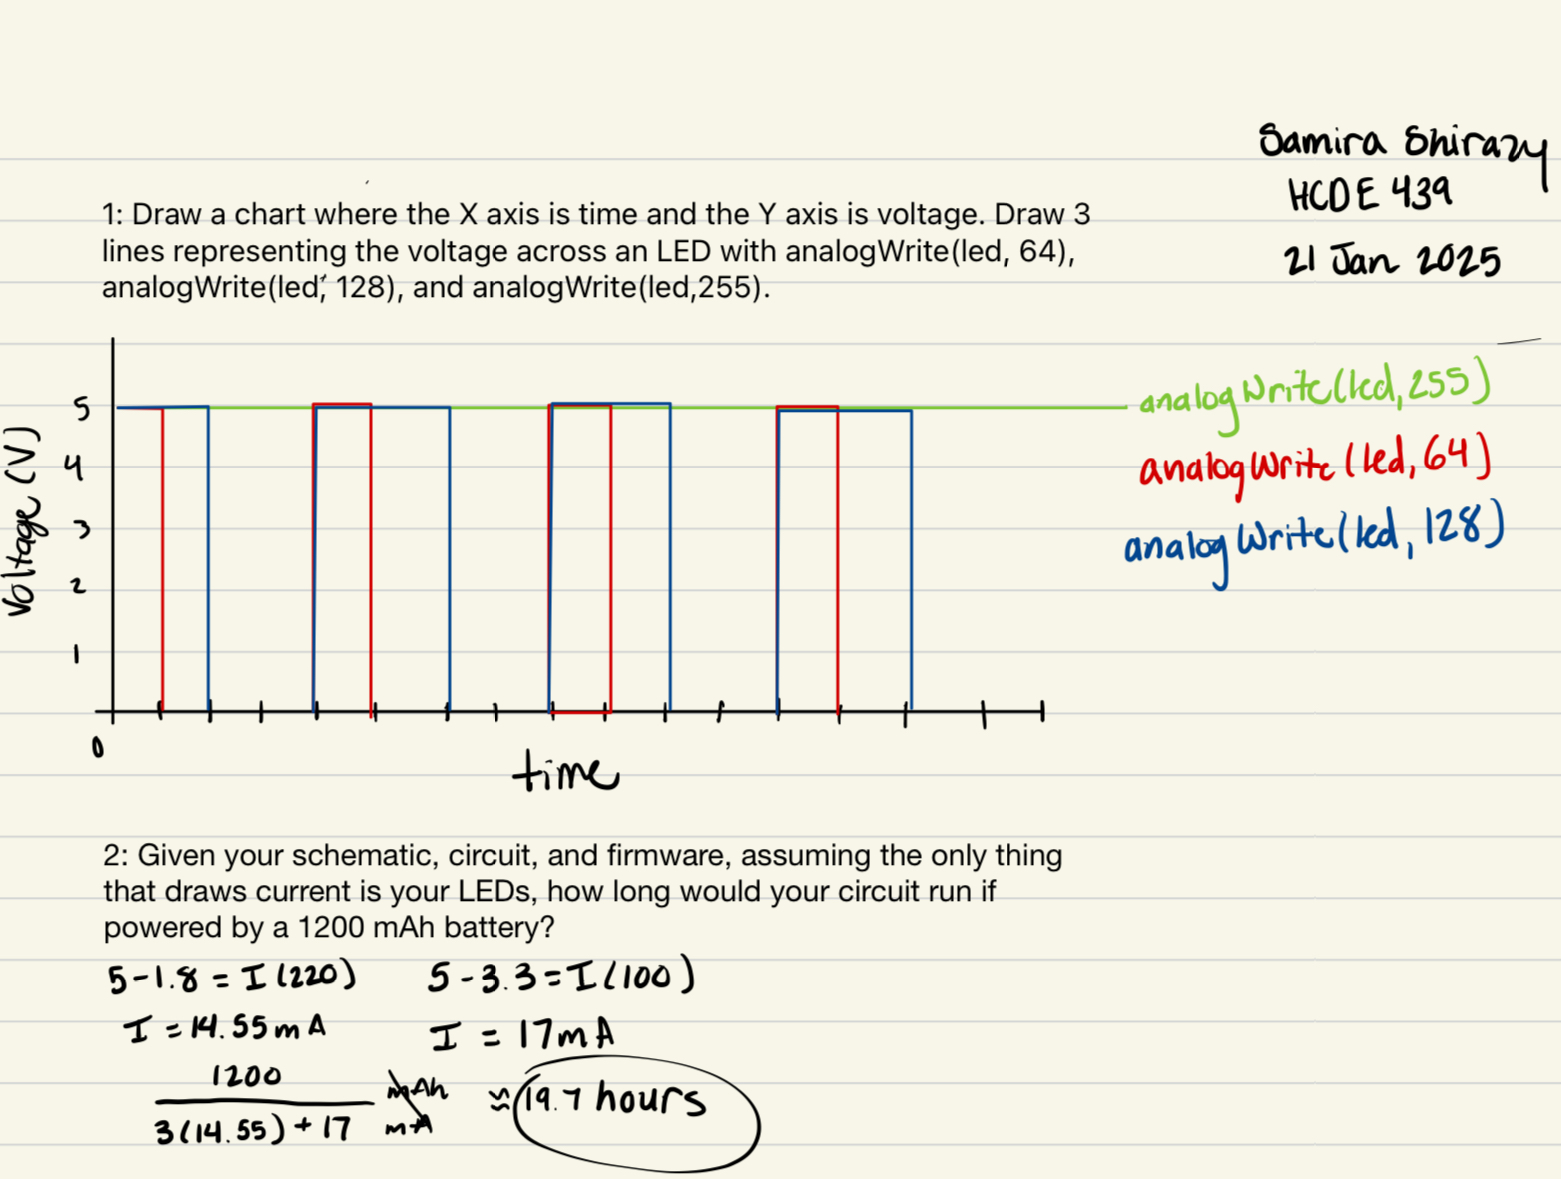 Samira Shirazy
HCDE 439
21 Jan 2025
1: Draw a chart where the X axis is time and the Y axis is voltage. Draw 3
lines representing the voltage across an LED with analogWrite(led, 64),
analogWrite(led, 128), and analogWrite(led,255).
analogWrite(led,255)
analogWrite(led,64)
analogWrite(led,128)
Voltage (V)
5
4
3
2
1
0
time
2: Given your schematic, circuit, and firmware, assuming the only thing
that draws current is your LEDs, how long would your circuit run if
powered by a 1200 mAh battery?
5-1.8 = I(220) 5-3.3=I(100)
I = 14.55mA I = 17mA
1200
3(14.55)+17
mAh
mA
≈ 19.7 hours